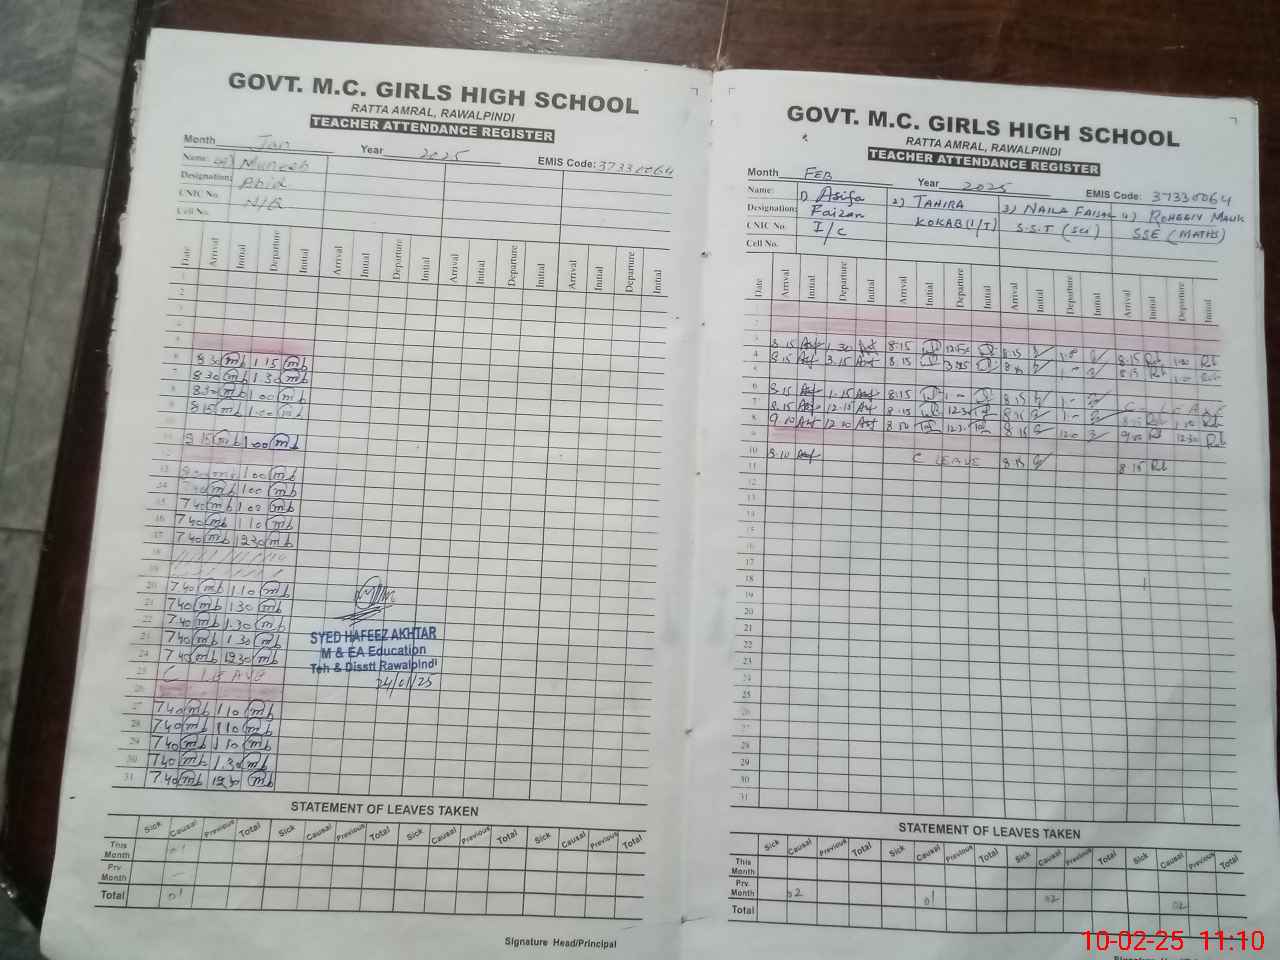 GOVT. M.C. GIRLS HIGH SCHOOL
RATTA AMRAL, RAWALPINDI
TEACHER ATTENDANCE REGISTER
Month Jan Year 2025 EMIS Code: 37330064
Name: Muneeb
Designation: Abid
CNIC No. N/Q
Cell No.
Date Arrival Initial Departure Initial Arrival Initial Departure Initial Arrival Initial Departure Initial Arrival Initial Departure Initial
1
2
3
4
5
6 8 30 mb 1.15 mb
7 830 mb 1.30 mb
8 830 mb 1.00 mb
9 815 mb 1.00 mb
10
11 815 mb 1.00 mb
12
13 1.00 mb
14 740 mb 1.00 mb
15 740 mb 1.00 mb
16 740 mb 1 10 mb
17 740 mb 1230 mb
18
19
20 740 mb 1.10 mb
21 740 mb 1.30 mb
22 740 mb 1.30 mb
23 740 mb 1.30 mb
24 740 mb 1230 mb
25 C LEAVE
26
27 740 mb 1.10 mb
28 740 mb 1.10 mb
29 740 mb 1.10 mb
30 740 mb 1.30 mb
31 740 mb 1230 mb
SYED HAFEEZ AKHTAR
M & EA Education
Teh & Disstt Rawalpindi
24/01/25
STATEMENT OF LEAVES TAKEN
Sick Causal Previous Total Sick Causal Previous Total Sick Causal Previous Total Sick Causal Previous Total
This Month 01
Prv Month –
Total 01
Signature Head/Principal
GOVT. M.C. GIRLS HIGH SCHOOL
RATTA AMRAL, RAWALPINDI
TEACHER ATTENDANCE REGISTER
Month FEB Year 2025 EMIS Code: 37330064
Name: 1) Asifa 2) TAHIRA 3) NAILA FAISAL 4) ROHEEN MALIK
Designation: Faizan KOKAB (I/T) S.S.T (Sci) SSE (MATHS)
CNIC No. I/C
Cell No.
Date Arrival Initial Departure Initial Arrival Initial Departure Initial Arrival Initial Departure Initial Arrival Initial Departure Initial
1
2
3 8.15 Asf 1.30 Asf 8:15 8:15 8:15 Rb 1:00 Rb
4 8.15 Asf 3.15 Asf 8:15 8:15 8:15 Rb 1:00 Rb
5
6 8.15 Asf 1.15 Asf 8:15 8:15 C-Leave
7 8.15 Asf 12.15 Asf 8:15 1230 8:15 8:15 Rb 1:00 Rb
8 9.10 Asf 12.30 Asf 8:50 12:30 8:15 1200 9:00 Rb 12:30 Rb
9
10 8.10 Asf C LEAVE 8:15 8:15 Rb
11
12
13
14
15
16
17
18
19
20
21
22
23
24
25
26
27
28
29
30
31
STATEMENT OF LEAVES TAKEN
Sick Causal Previous Total Sick Causal Previous Total Sick Causal Previous Total Sick Causal Previous Total
This Month
Prv Month 02 01 02 02
Total
10-02-25 11:10